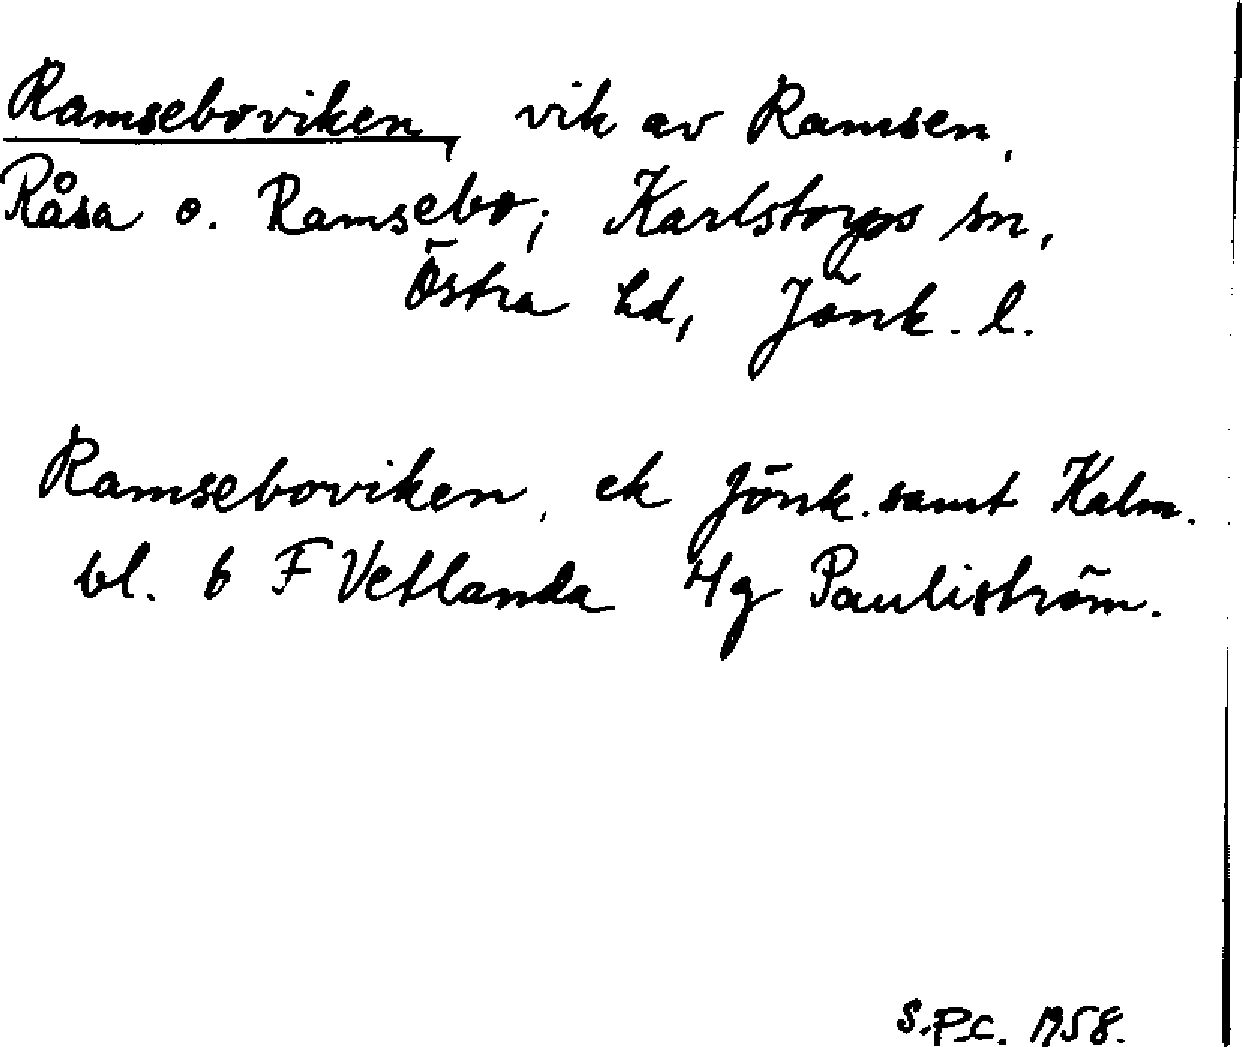 Ramseboviken, vik av Ramsen,
Råsa o. Ramsebo; Karlstorps sn,
Östra hd, Jönk. l.
Ramseboviken, ek Jönk. samt Kalm.
bl. 6 F Vetlanda 4g Pauliström.
S.P.C. 1958.